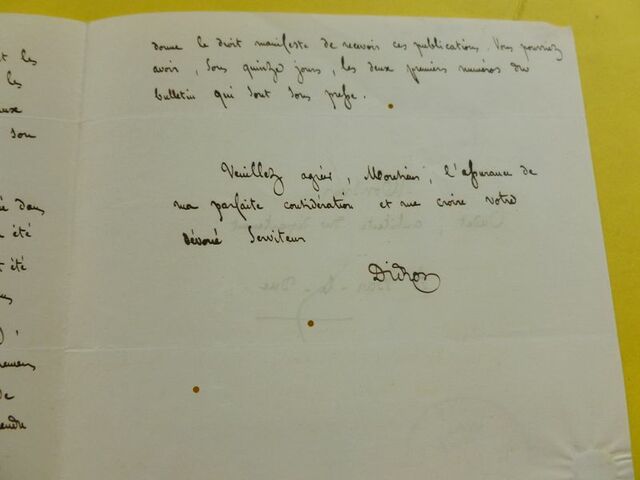 t les
les
aux
son
ée dans
été
t été
de
endre
donne le droit manifeste de recevoir ces publications. Vous pourrez
avoir, sous quinze jours, les deux premiers numéros du
bulletin qui sont sous presse.
Veuillez agréer, Monsieur, l'assurance de
ma parfaite considération et me croire votre
dévoué Serviteur
Didron